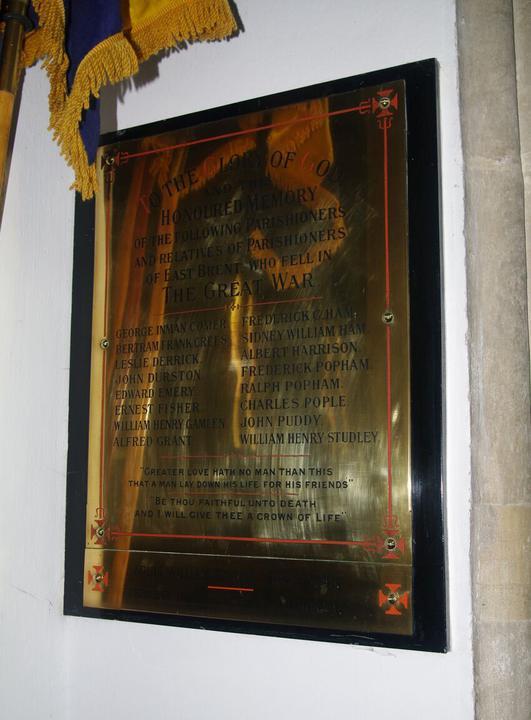 TO THE GLORY OF GOD
AND THE
HONOURED MEMORY
OF THE FOLLOWING PARISHIONERS
AND RELATIVES OF PARISHIONERS
OF EAST BRENT, WHO FELL IN
THE GREAT WAR.
GEORGE INMAN COMER.
BERTRAM FRANK CREES.
LESLIE DERRICK.
JOHN DURSTON.
EDWARD EMERY.
ERNEST FISHER.
WILLIAM HENRY GAMLEN.
ALFRED GRANT.
FREDERICK C. HAM.
SIDNEY WILLIAM HAM.
ALBERT HARRISON.
FREDERICK POPHAM.
RALPH POPHAM.
CHARLES POPLE.
JOHN PUDDY.
WILLIAM HENRY STUDLEY.
"GREATER LOVE HATH NO MAN THAN THIS
THAT A MAN LAY DOWN HIS LIFE FOR HIS FRIENDS"
"BE THOU FAITHFUL UNTO DEATH
AND I WILL GIVE THEE A CROWN OF LIFE"